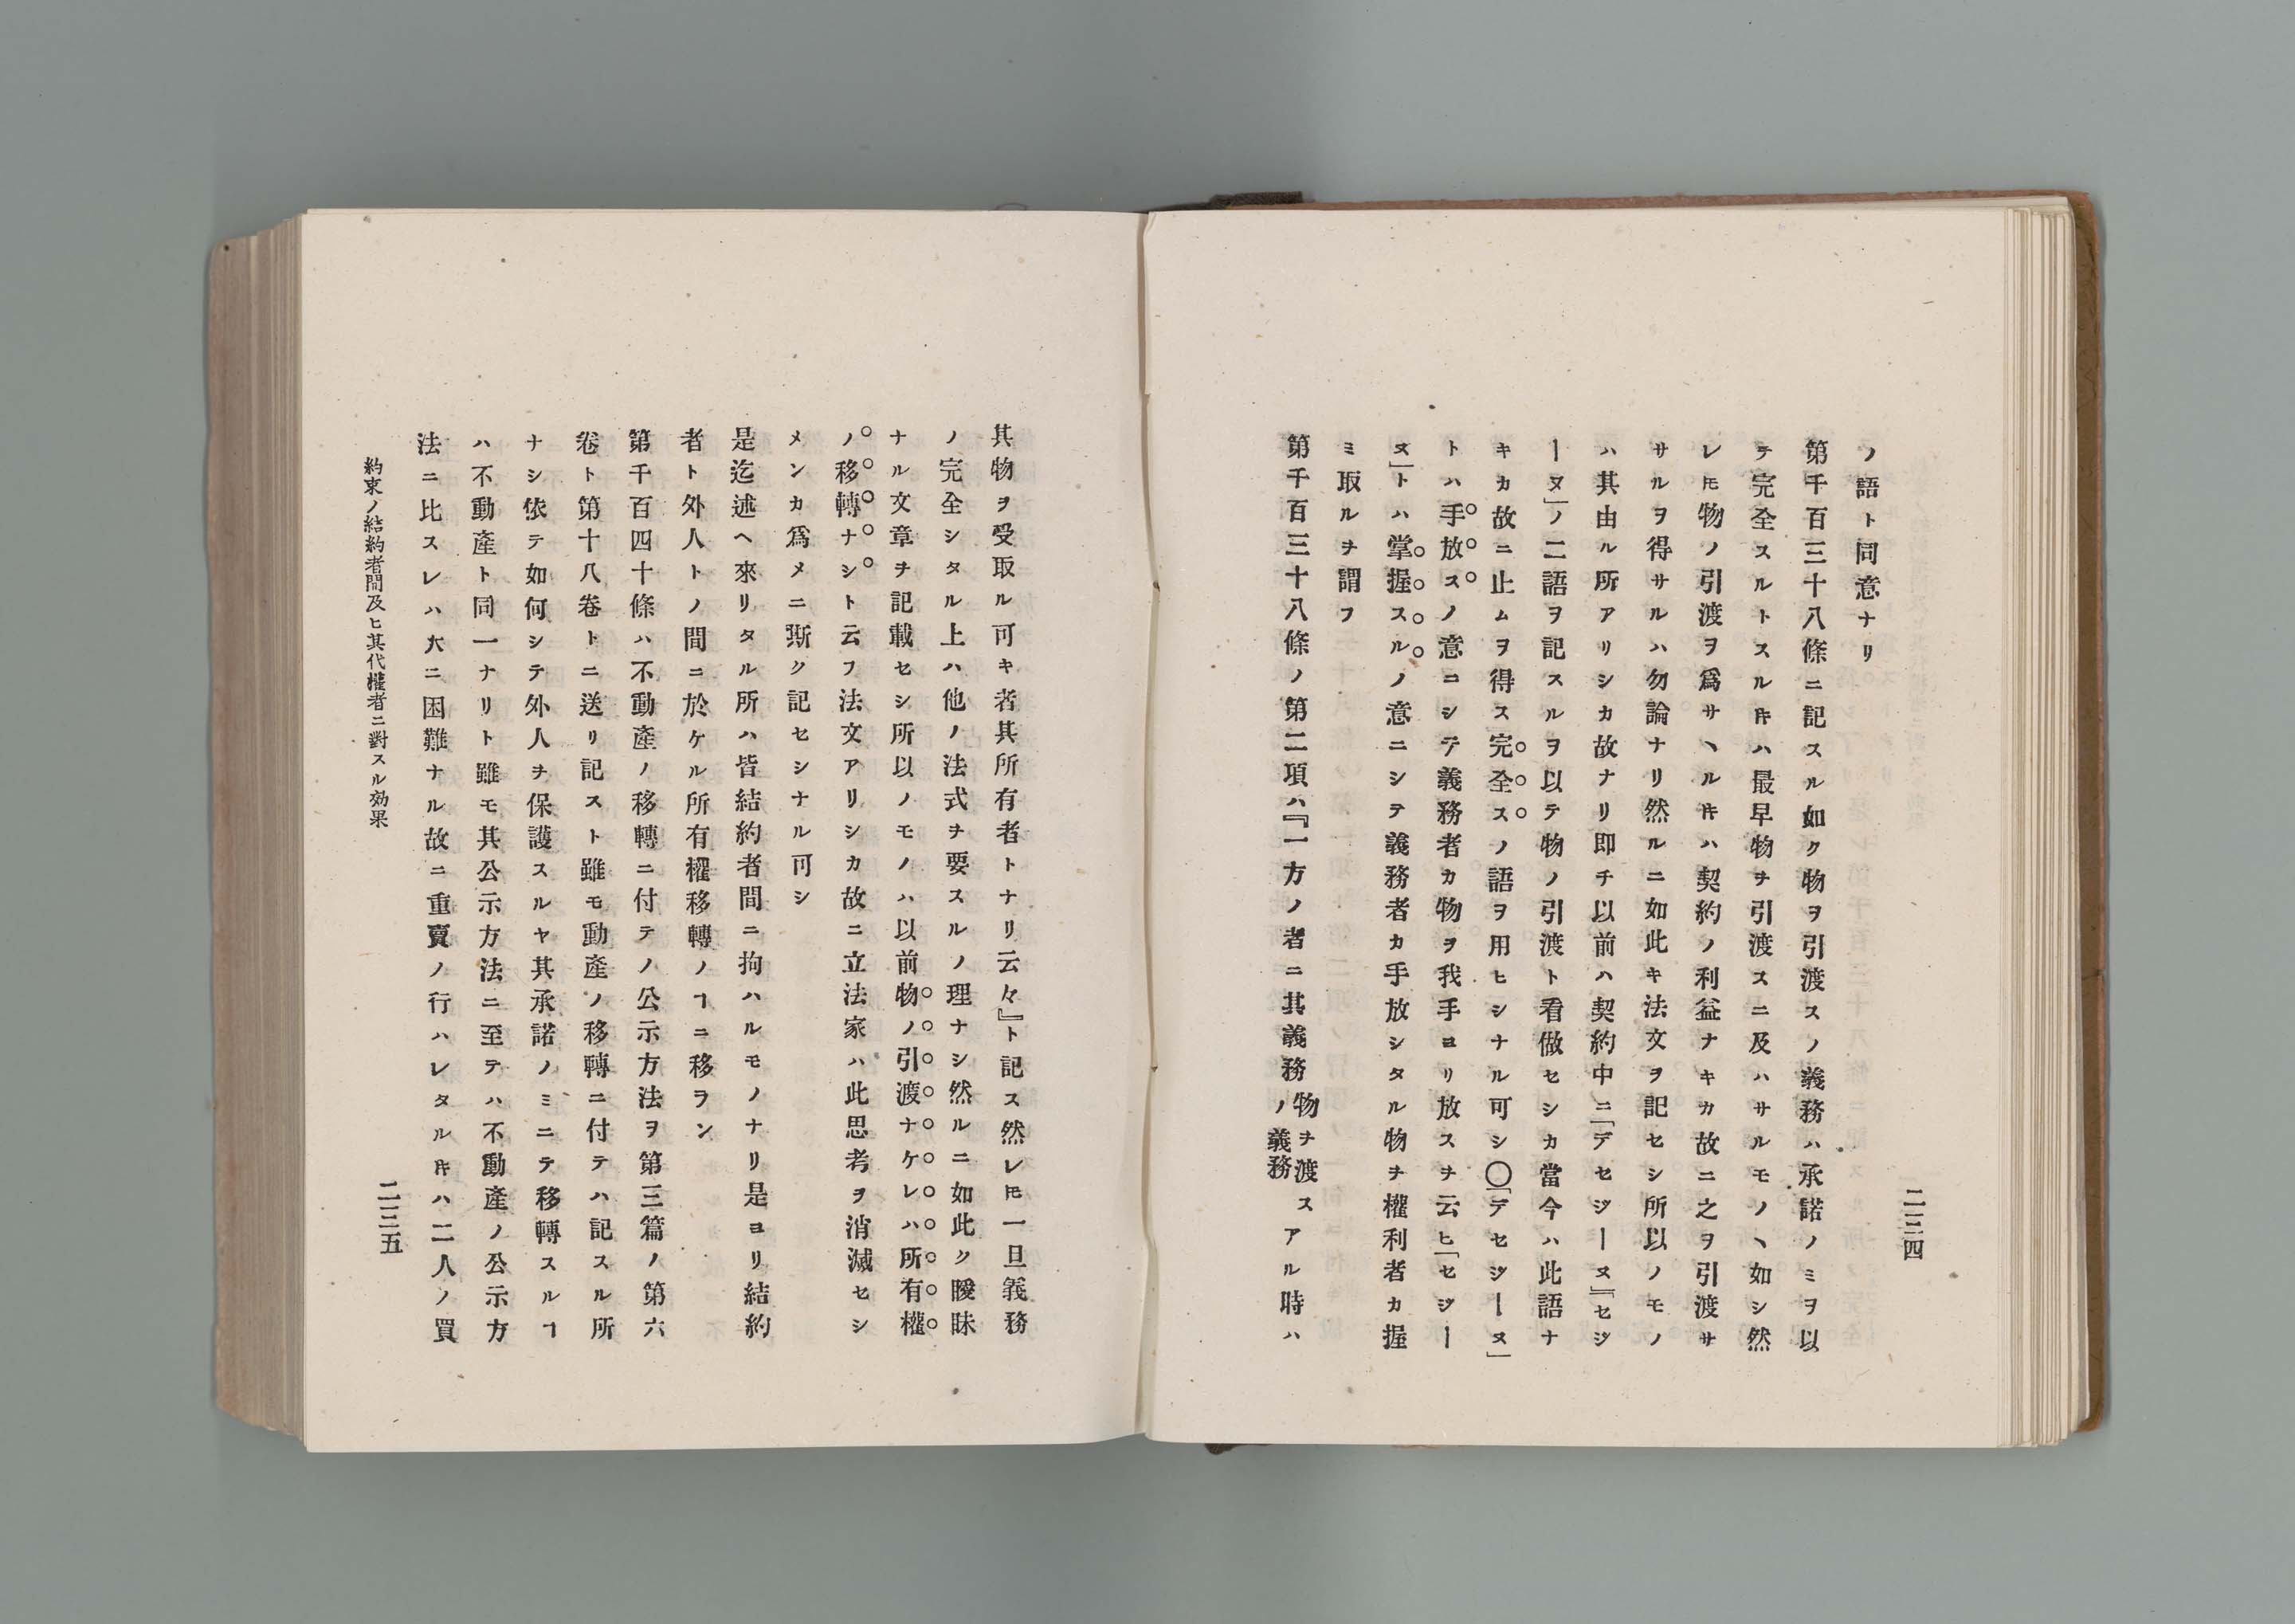 二三四
ノ語ト同意ナリ
第千百三十八條ニ記スル如ク物ヲ引渡スノ義務ハ承諾ノミヲ以
テ完全スルトスルキハ最早物ヲ引渡スニ及ハサルモノヽ如シ然
レ𪜈物ノ引渡ヲ爲サヽルキハ契約ノ利益ナキカ故ニ之ヲ引渡サ
サルヲ得サルハ勿論ナリ然ルニ如此キ法文ヲ記セシ所以ノモノ
ハ其由ル所アリシカ故ナリ即チ以前ハ契約中ニ「デセジーヌ」「セジ
ーヌ」ノ二語ヲ記スルヲ以テ物ノ引渡ト看做セシカ當今ハ此語ナ
キカ故ニ止ムヲ得ス完全スノ語ヲ用ヒシナル可シ〇「デセジーヌ」
トハ手放スノ意ニシテ義務者カ物ヲ我手ヨリ放スヲ云ヒ「セジー
ヌ」トハ掌握スルノ意ニシテ義務者カ手放シタル物ヲ權利者カ握
ミ取ルヲ謂フ
第千百三十八條ノ第二項ハ『一方ノ者ニ其義務物ヲ渡スノ義務アル時ハ
其物ヲ受取ル可キ者其所有者トナリ云々』ト記ス然レ𪜈一旦義務
ノ完全シタル上ハ他ノ法式ヲ要スルノ理ナシ然ルニ如此ク曖昧
ナル文章ヲ記載セシ所以ノモノハ以前物ノ引渡ナケレハ所有權
ノ移轉ナシト云フ法文アリシカ故ニ立法家ハ此思考ヲ消滅セシ
メンカ爲メニ斯ク記セシナル可シ
是迄述ヘ來リタル所ハ皆結約者間ニ拘ハルモノナリ是ヨリ結約
者ト外人トノ間ニ於ケル所有權移轉ノヿニ移ラン
第千百四十條ハ不動產ノ移轉ニ付テノ公示方法ヲ第三篇ノ第六
卷ト第十八卷トニ送リ記スト雖モ動產ノ移轉ニ付テハ記スル所
ナシ依テ如何シテ外人ヲ保護スルヤ其承諾ノミニテ移轉スルヿ
ハ不動產ト同一ナリト雖モ其公示方法ニ至テハ不動產ノ公示方
法ニ比スレハ大ニ困難ナル故ニ重賣ノ行ハレタルキハ二人ノ買
約束ノ結約者間及ヒ其代權者ニ對スル効果
二三五